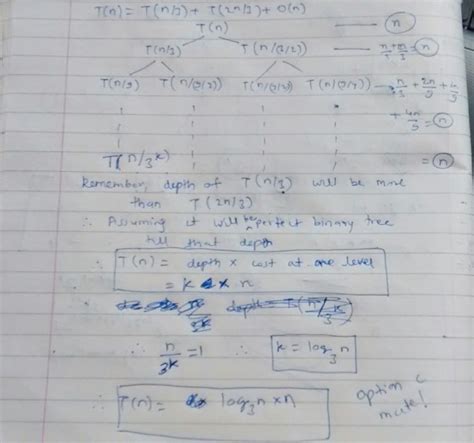 T(n) = T(n/3) + T(2n/3) + O(n)
T(n) — n
T(n/3) T(n/(3/2)) — = n
T(n/9) T(n/(9/2)) T(n/(9/2)) T(n/(9/4)) — + 2n/9 +
+ 4n/9 = n
T(n/3^k) = n
Remember, depth of T(n/3) will be more
than T(2n/3)
∴ Assuming it will be perfect binary tree
till that depth
T(n) = depth x cost at one level
= k x n
∴ n/3^k = 1 ∴ k = log₃n
∴ T(n) = log₃n x n
option c
mate!